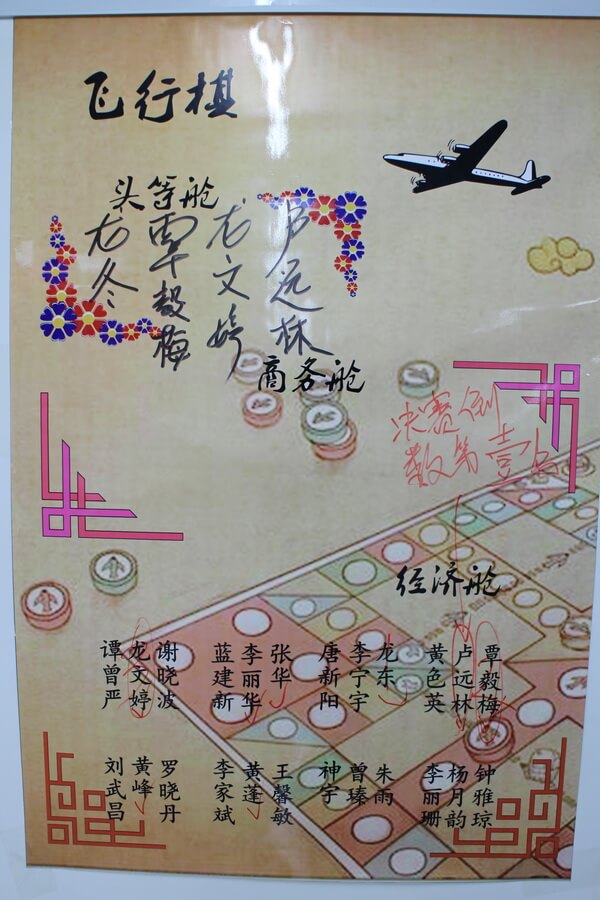 飞行棋
头等舱
龙冬
覃毅梅
龙文婷
卢远林
商务舱
决赛倒
数第壹名
经济舱
谭曾严
龙文婷
谢晓波
蓝建新
李丽华
张华
唐新阳
李宁宇
龙东
黄色英
卢远林
覃毅梅
刘武昌
黄峰
罗晓丹
李家斌
黄蓬
王馨敏
神宇
曾瑧
朱雨
李丽珊
杨月韵
钟雅琼